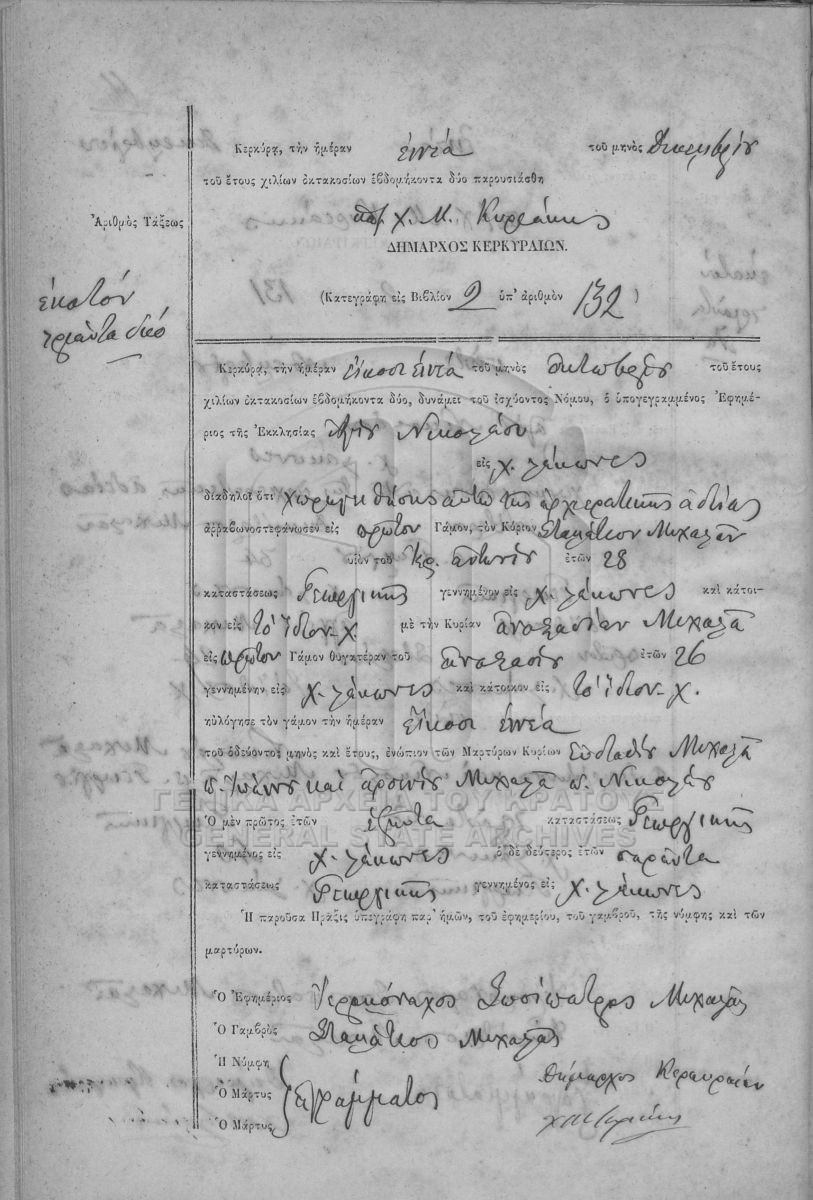 Κερκύρᾳ, τὴν ἡμέραν ἐννέα τοῦ μηνὸς Δεκεμβρίου
τοῦ ἔτους χιλίων ὀκτακοσίων ἑβδομήκοντα δύο παρουσιάσθη
Ἀριθμὸς Τάξεως
Χ. Μ. Κυριάκης
ΔΗΜΑΡΧΟΣ ΚΕΡΚΥΡΑΙΩΝ.
ἑκατόν
τριάντα δύο
(Κατεγράφη εἰς Βιβλίον 2 ὑπ' ἀριθμὸν 132)
Κερκύρᾳ, τὴν ἡμέραν εἴκοσι ἐννέα τοῦ μηνὸς Ὀκτωβρίου τοῦ ἔτους
χιλίων ὀκτακοσίων ἑβδομήκοντα δύο, δυνάμει τοῦ ἰσχύοντος Νόμου, ὁ ὑπογεγραμμένος Ἐφημέ-
ριος τῆς Ἐκκλησίας Ἁγίου Νικολάου
εἰς χ. Λάκωνες
διαδηλοῖ ὅτι χορηγηθείσης αὐτῷ τῆς ἀρχιερατικῆς ἀδείας
ἀρραβωνοστεφάνωσεν εἰς πρῶτον Γάμον, τὸν Κύριον Σταμάτιον Μιχαλᾶν
υἱὸν τοῦ Ἀντωνίου ἐτῶν 28
καταστάσεως Γεωργικῆς γεννημένον εἰς χ. Λάκωνες καὶ κάτοι-
κον εἰς τὸ ἴδιον χ. μὲ τὴν Κυρίαν Ἀναστασίαν Μιχαλᾶ
εἰς πρῶτον Γάμον θυγατέραν τοῦ Ἀναστασίου ἐτῶν 26
γεννημένην εἰς χ. Λάκωνες καὶ κάτοικον εἰς τὸ ἴδιον χ.
ηὐλόγησε τὸν γάμον τὴν ἡμέραν εἴκοσι ἐννέα
τοῦ ὁδεύοντος μηνὸς καὶ ἔτους, ἐνώπιον τῶν Μαρτύρων Κυρίων Εὐσταθίου Μιχαλᾶ
π. Ἰωάννου καὶ Ἀρσενίου Μιχαλᾶ π. Νικολάου
ΓΕΝΙΚΑ ΑΡΧΕΙΑ ΤΟΥ ΚΡΑΤΟΥΣ
Ὁ μὲν πρῶτος ἐτῶν ἑξῆντα καταστάσεως Γεωργικῆς
GENERAL STATE ARCHIVES
γεννημένος εἰς χ. Λάκωνες ὁ δὲ δεύτερος ἐτῶν σαράντα
καταστάσεως Γεωργικῆς γεννημένος εἰς χ. Λάκωνες
Ἡ παροῦσα Πρᾶξις ὑπεγράφη παρ' ἡμῶν, τοῦ ἐφημερίου, τοῦ γαμβροῦ, τῆς νύμφης καὶ τῶν
μαρτύρων.
Ὁ Ἐφημέριος Ἱερομόναχος Σωσίπατρος Μιχαλᾶς
Ὁ Γαμβρὸς Σταμάτιος Μιχαλᾶς
Ἡ Νύμφη
Ὁ Μάρτυς ἀγράμματος
Ὁ Μάρτυς
Δήμαρχος Κερκυραίων
Χ Μ Κυριάκης